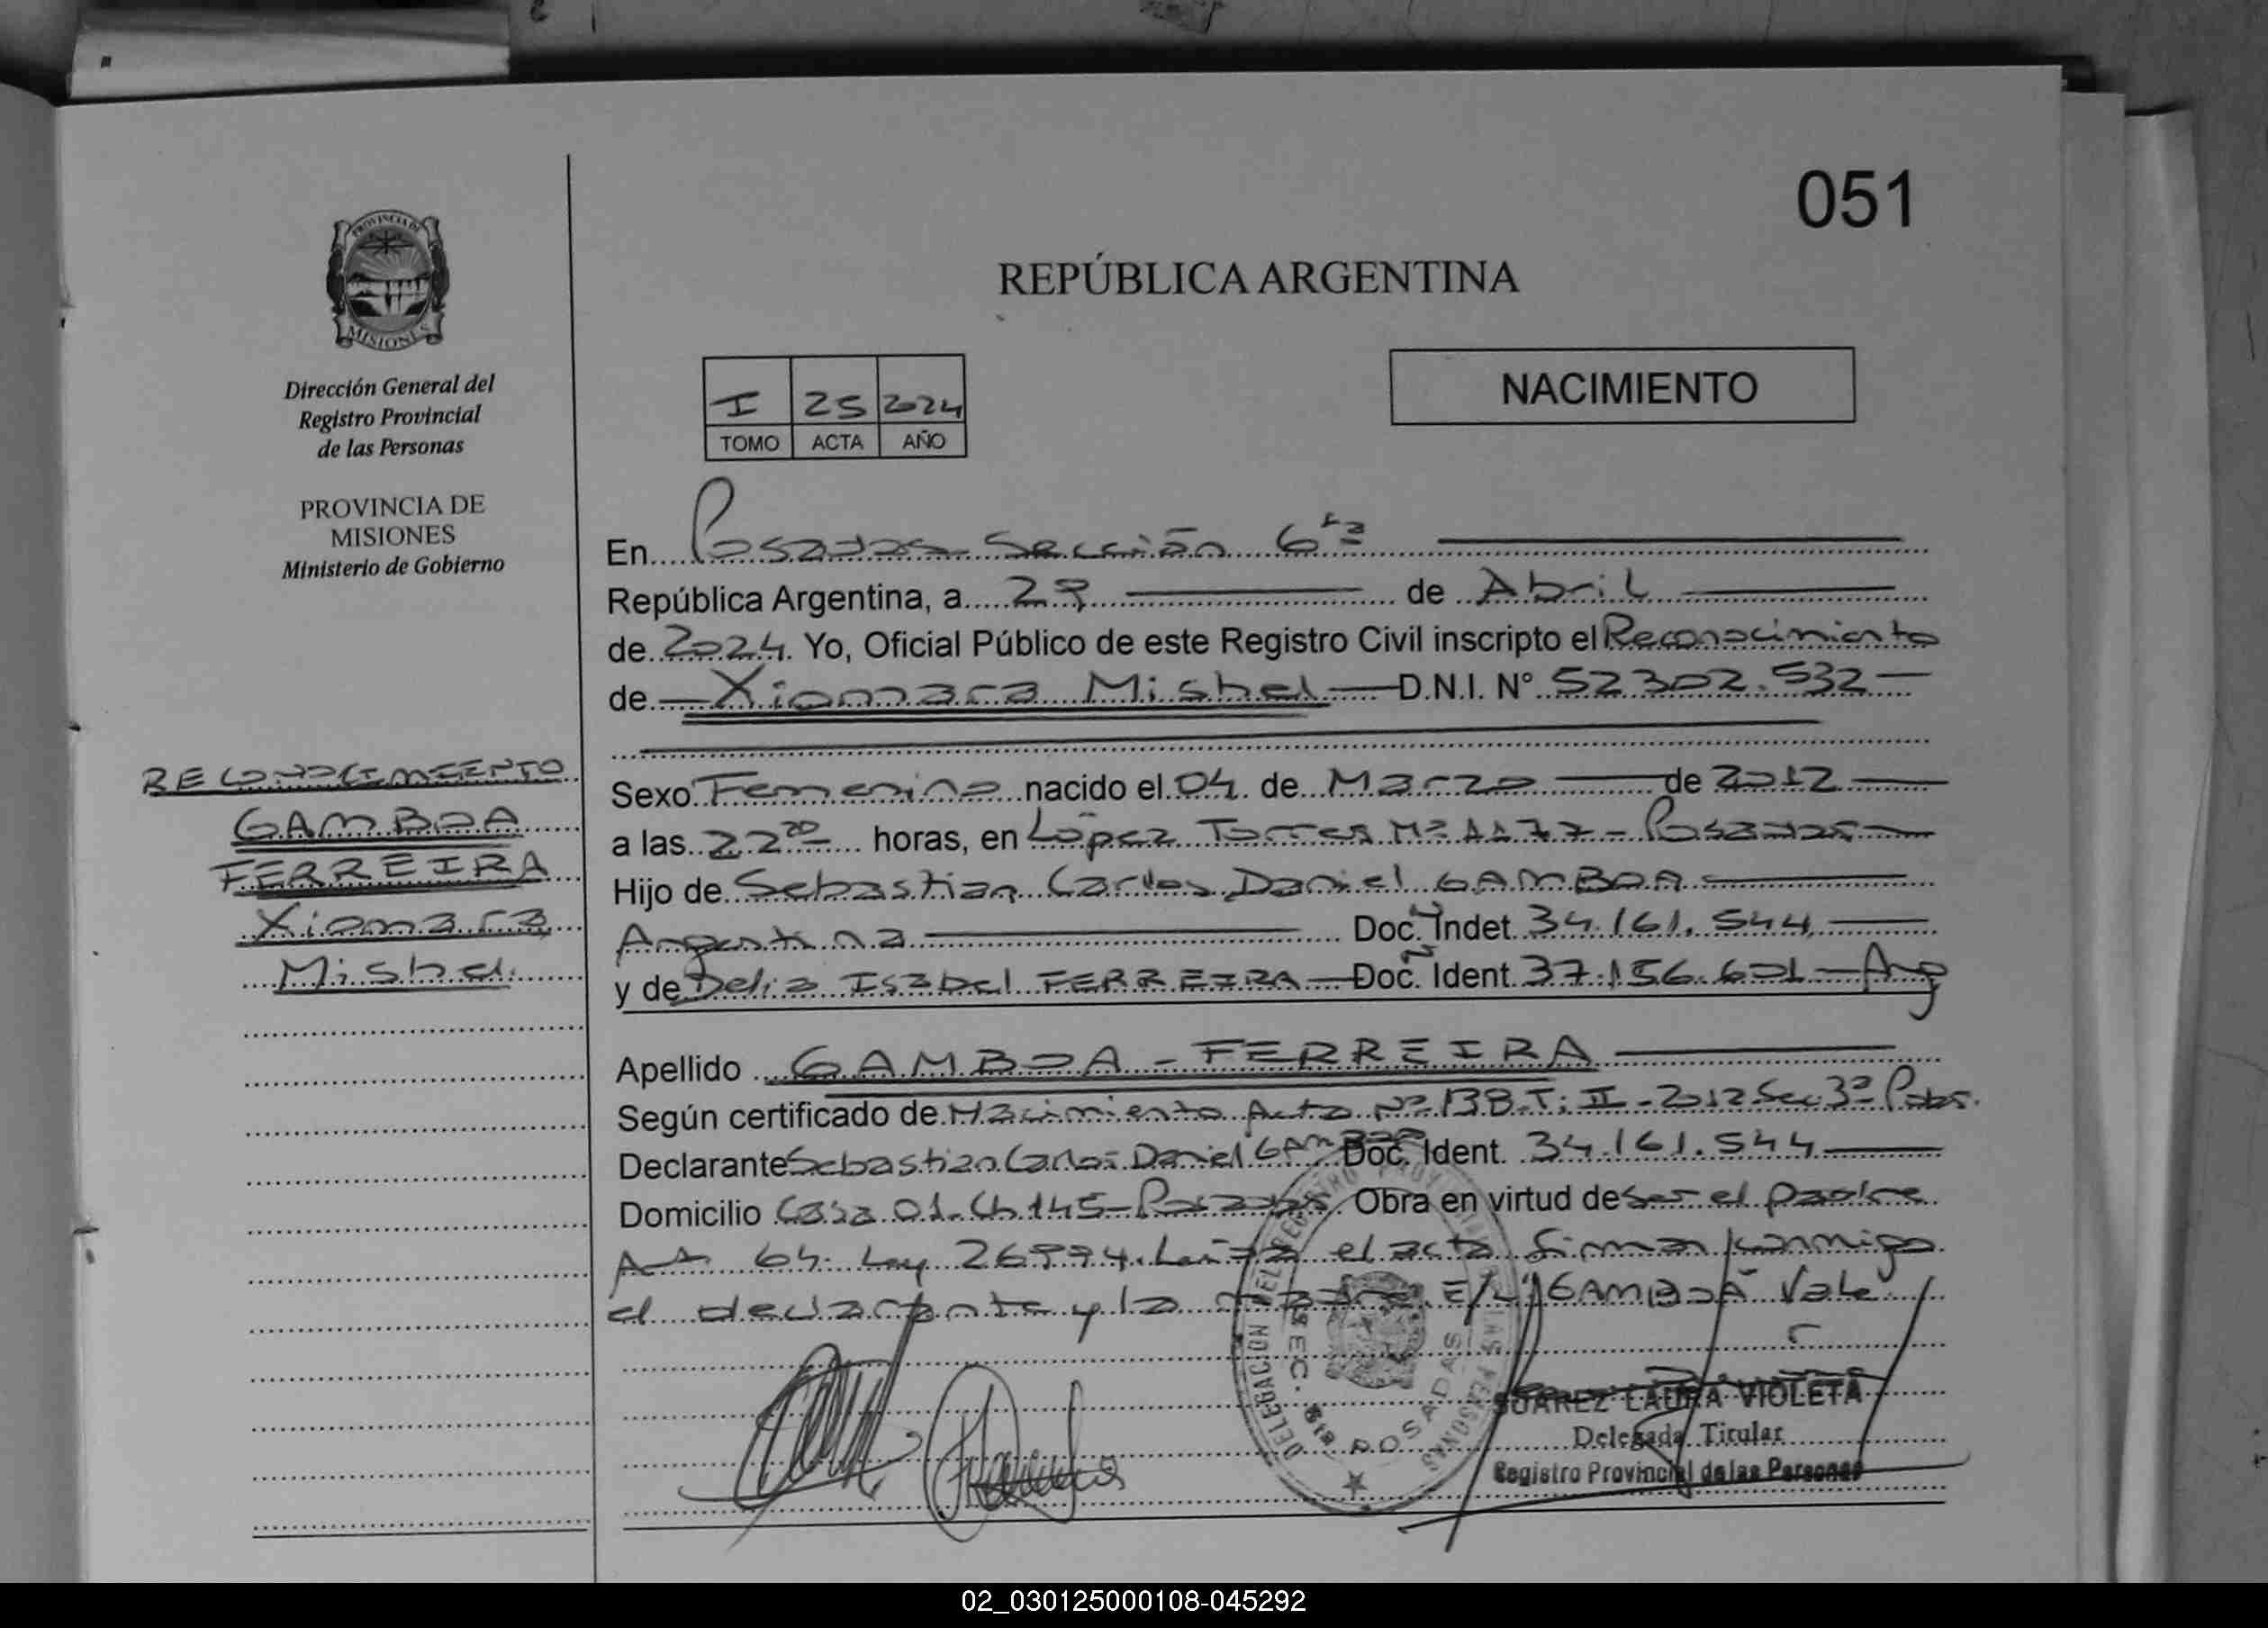 051
REPÚBLICA ARGENTINA
PROVINCIA DE
MISIONES
Dirección General del
Registro Provincial
de las Personas
PROVINCIA DE
MISIONES
Ministerio de Gobierno
I 25 2024
TOMO ACTA AÑO
NACIMIENTO
En Posadas Sección 6ta
República Argentina, a 29 de Abril
de 2024. Yo, Oficial Público de este Registro Civil inscripto el Reconocimiento
de Xiomara Mishel D.N.I. N° 52302.532
RECONOCIMIENTO
GAMBOA
FERREIRA
Xiomara
Mishel
Sexo Femenino nacido el 04 de Marzo de 2012
a las 22 20 horas, en López Torres Nº 1177 - Posadas
Hijo de Sebastian Carlos Daniel GAMBOA
Argentina Doc. Indet. 34.161.544
y de Delia Isabel FERREIRA Doc. Ident. 37.156.601 - Arg
Apellido GAMBOA - FERREIRA
Según certificado de Nacimiento Acta Nº 138.T: II - 2012 Sec 3ª Pdas.
Declarante Sebastian Carlos Daniel GAMBOA Doc. Ident. 34.161.544
Domicilio Casa 01. Ch 145 - Posadas Obra en virtud de Ser el padre
64 Ley 26994. el acta firman conmigo
el declarante y la madre. E/L "GAMBOA" Vale
DELEGACION DEL REGISTRO PROVINCIAL DE LAS PERSONAS
SEC. 6ta POSADAS
SUAREZ LAURA VIOLETA
Delegada Titular
Registro Provincial de las Personas
02_030125000108-045292